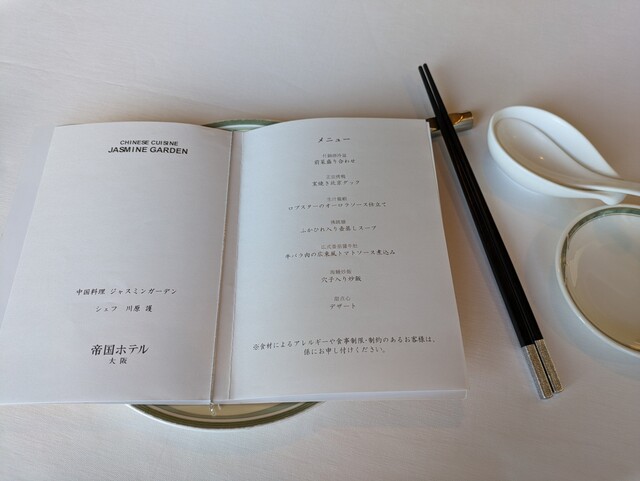 CHINESE CUISINE
JASMINE GARDEN
中国料理 ジャスミンガーデン
シェフ 川原 護
帝国ホテル
大阪
メニュー
前菜盛り合わせ
窯焼き北京ダック
ロブスターのオーロラソース仕立て
ふかひれ入り壺蒸しスープ
牛バラ肉の広東風トマトソース煮込み
穴子入り炒飯
デザート
※食材によるアレルギーや食事制限・制約のあるお客様は、
係にお申し付けください。